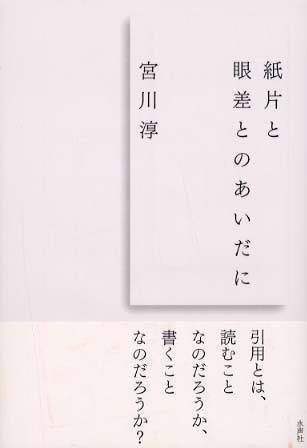 紙片と
眼差とのあいだに
宮川淳
引用とは、
読むこと
なのだろうか、
書くこと
なのだろうか?
水声社